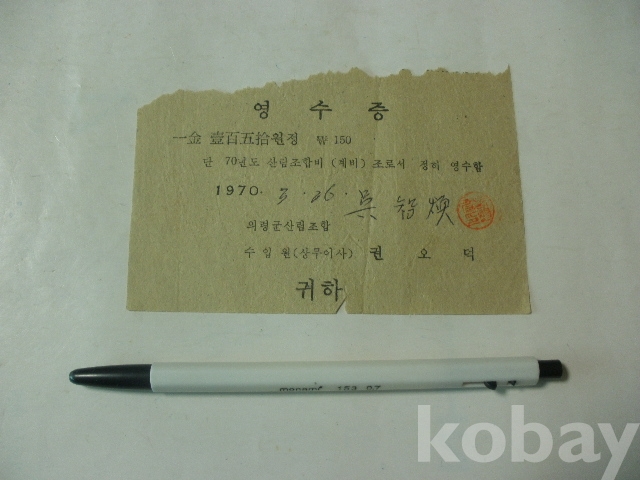 영 수 증
一金 壹百五拾원정 ₩ 150
단 70년도 산림조합비 (제비) 조로서 정히 영수함
1970. 3. 26. 吳
의령군산림조합
수입원(상무이사) 권 오 덕
귀하
monami 153 0.7
kobay